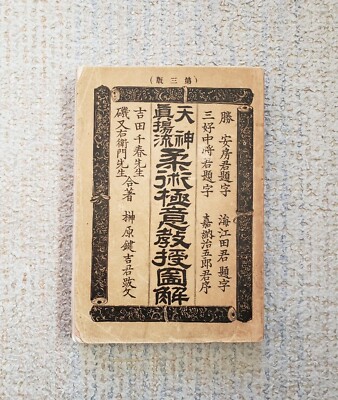 (第三版)
勝 安房君題字 海江田君題字
三好中將君題字 嘉納治五郎君序
天神
眞揚流
柔術極意敎授圖解
吉田千春先生
磯又右衛門先生
合著 榊原鍵吉君跋文